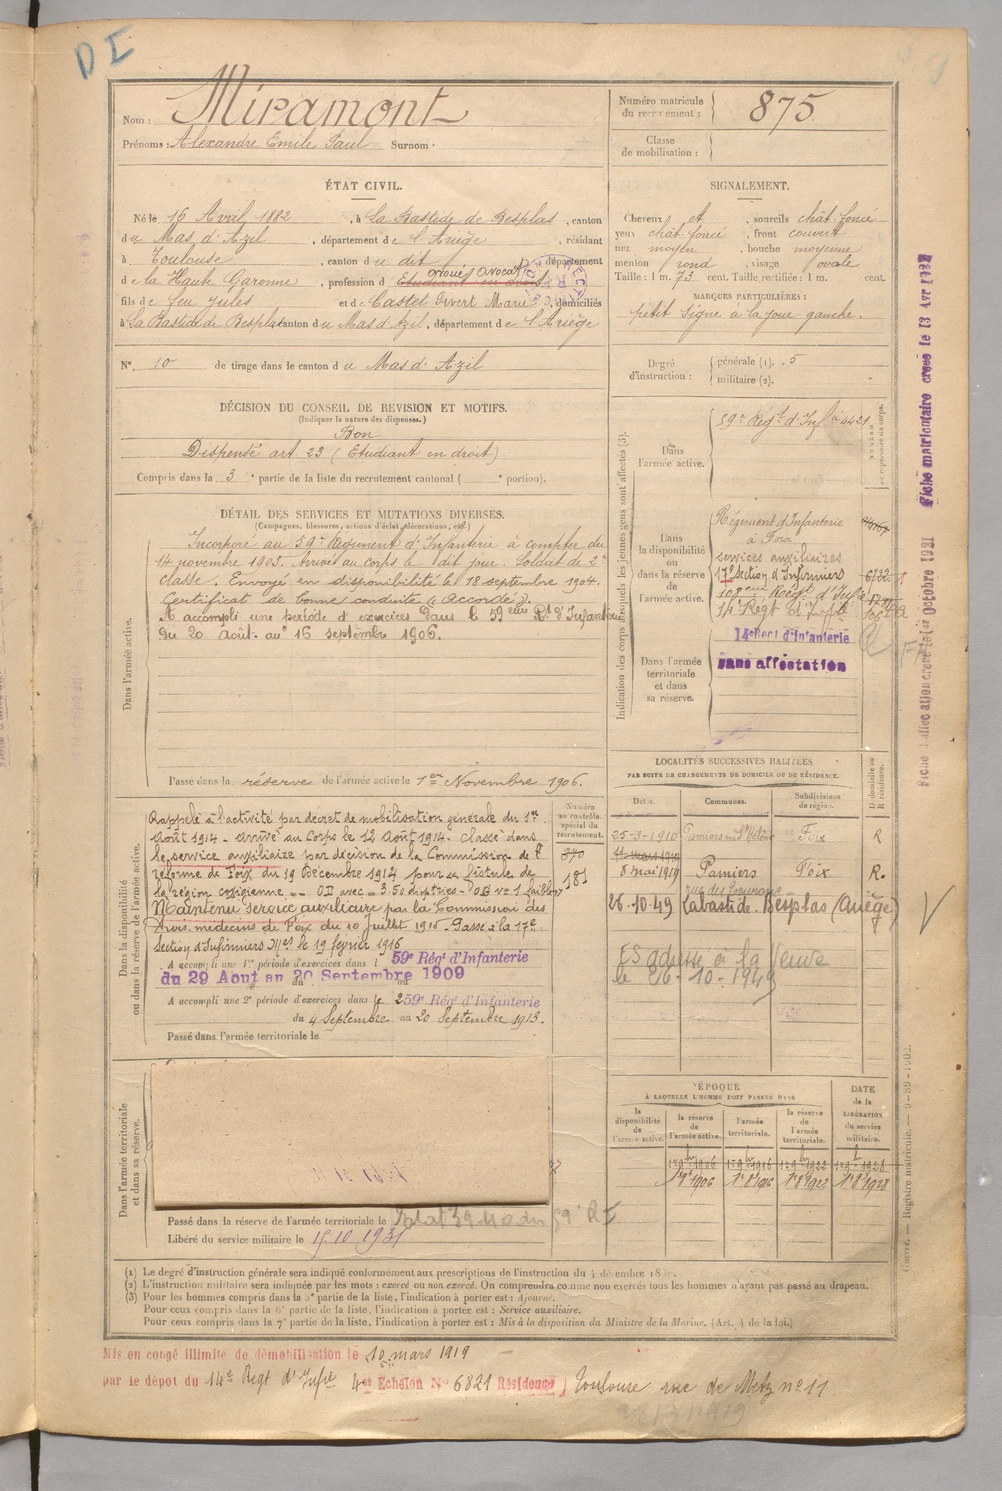 DI
Nom : Miramont
Prénoms : Alexandre Emile Paul Surnom :
Numéro matricule du recrutement : 875
Classe de mobilisation :
ÉTAT CIVIL.
Né le 16 Avril 1882, à La Bastide de Besplas, canton
du Mas d'Azil, département de l'Ariège, résidant
à Toulouse, canton du dit, département
avoué avocat
de la Haute Garonne, profession d Etudiant en droit
fils de feu Jules et de Castet Overt Marie, domiciliés
à La Bastide de Besplas canton du Mas d'Azil, département de l'Ariège
N° 10 de tirage dans le canton du Mas d'Azil
SIGNALEMENT.
Cheveux et, sourcils chât foncé
yeux chât foncé, front couvert
nez moyen, bouche moyenne
menton rond, visage ovale
Taille : 1 m. 73 cent. Taille rectifiée : 1 m. cent.
MARQUES PARTICULIÈRES :
petit signe à la joue gauche.
Degré d'instruction : générale (1). 5
militaire (2).
DÉCISION DU CONSEIL DE REVISION ET MOTIFS.
(Indiquer la nature des dispenses.)
Bon
Dispensé art. 23 (Etudiant en droit)
Compris dans la 3e partie de la liste du recrutement cantonal ( e portion).
DÉTAIL DES SERVICES ET MUTATIONS DIVERSES.
(Campagnes, blessures, actions d'éclat, décorations, etc.)
Dans l'armée active.
Incorporé au 59e Régiment d'Infanterie à compter du
14 novembre 1903. Arrivé au corps le dit jour. Soldat de 2e
classe. Envoyé en disponibilité le 18 septembre 1904.
Certificat de bonne conduite "Accordé".
A accompli une période d'exercices dans le 59eme Rt d'Infanterie
du 20 Août au 16 septembre 1906.
Passé dans la réserve de l'armée active le 1er Novembre 1906.
Indication des corps auxquels les jeunes gens sont affectés (3).
Dans l'armée active.
59e Régt d'Inf à 4421
Dans la disponibilité ou dans la réserve de l'armée active.
Régiment d'Infanterie
à Foix
services auxiliaires
17e Section d'Infirmiers 6722
14e Régt d'Infie
14e Régt d'Infanterie
Dans l'armée territoriale et dans sa réserve.
Sans affectation
Fiche matriculaire créée le 13 Avr 1922
Dans la disponibilité ou dans la réserve de l'armée active.
Rappelé à l'activité par décret de mobilisation générale du 1er
Août 1914. Arrivé au Corps le 12 Août 1914. Classé dans
le service auxiliaire par décision de la Commission de
réforme de Foix du 19 Décembre 1914 pour
la région coxigienne
Maintenu service auxiliaire par la Commission des
trois médecins de Foix du 10 juillet 1915. Passé à la 17e
Section d'Infirmiers Mres le 19 février 1916
A accompli une 1re période d'exercices dans l 59e Régt d'Infanterie
du 29 Aout au 20 Septembre 1909
A accompli une 2e période d'exercices dans le 259e Régt d'Infanterie
du 4 Septembre au 20 Septembre 1913.
Passé dans l'armée territoriale le
Numéro au contrôle spécial du recrutement.
370
181
LOCALITÉS SUCCESSIVES HABITÉES
PAR SUITE DE CHANGEMENTS DE DOMICILE OU DE RÉSIDENCE.
Dates. Communes. Subdivisions de région. D domicile ou R résidence.
25-3-1910 Pamiers rue Ste Hélène Foix R
8 mai 1919 Pamiers Foix R.
26.10.49 Labastide-Besplas (Ariège)
ES adresse à la Veuve
le 26-10-1949
Dans l'armée territoriale et dans sa réserve.
Passé dans la réserve de l'armée territoriale le
Libéré du service militaire le 15.10.1931
ÉPOQUE
À LAQUELLE L'HOMME DOIT PASSER DANS
la disponibilité de l'armée active. la réserve de l'armée active. l'armée territoriale. la réserve de l'armée territoriale.
DATE de la LIBÉRATION du service militaire.
1er 9bre 1906 1er 9bre 1916 1er 9bre 1922 1er 9bre 1928
(1) Le degré d'instruction générale sera indiqué conformément aux prescriptions de l'instruction du 4 décembre
(2) L'instruction militaire sera indiquée par les mots : exercé ou non exercé. On comprendra comme non exercés tous les hommes n'ayant pas passé au drapeau.
(3) Pour les hommes compris dans la 5e partie de la liste, l'indication à porter est : Ajourné.
Pour ceux compris dans la 6e partie de la liste, l'indication à porter est : Service auxiliaire.
Pour ceux compris dans la 7e partie de la liste, l'indication à porter est : Mis à la disposition du Ministre de la Marine. (Art. 4 de la loi.)
Mis en congé illimité de démobilisation le 10 mars 1919
par le dépot du 14e Regt d'Infie 4e Echelon N° 6821 Résidence Toulouse rue de Metz n° 11